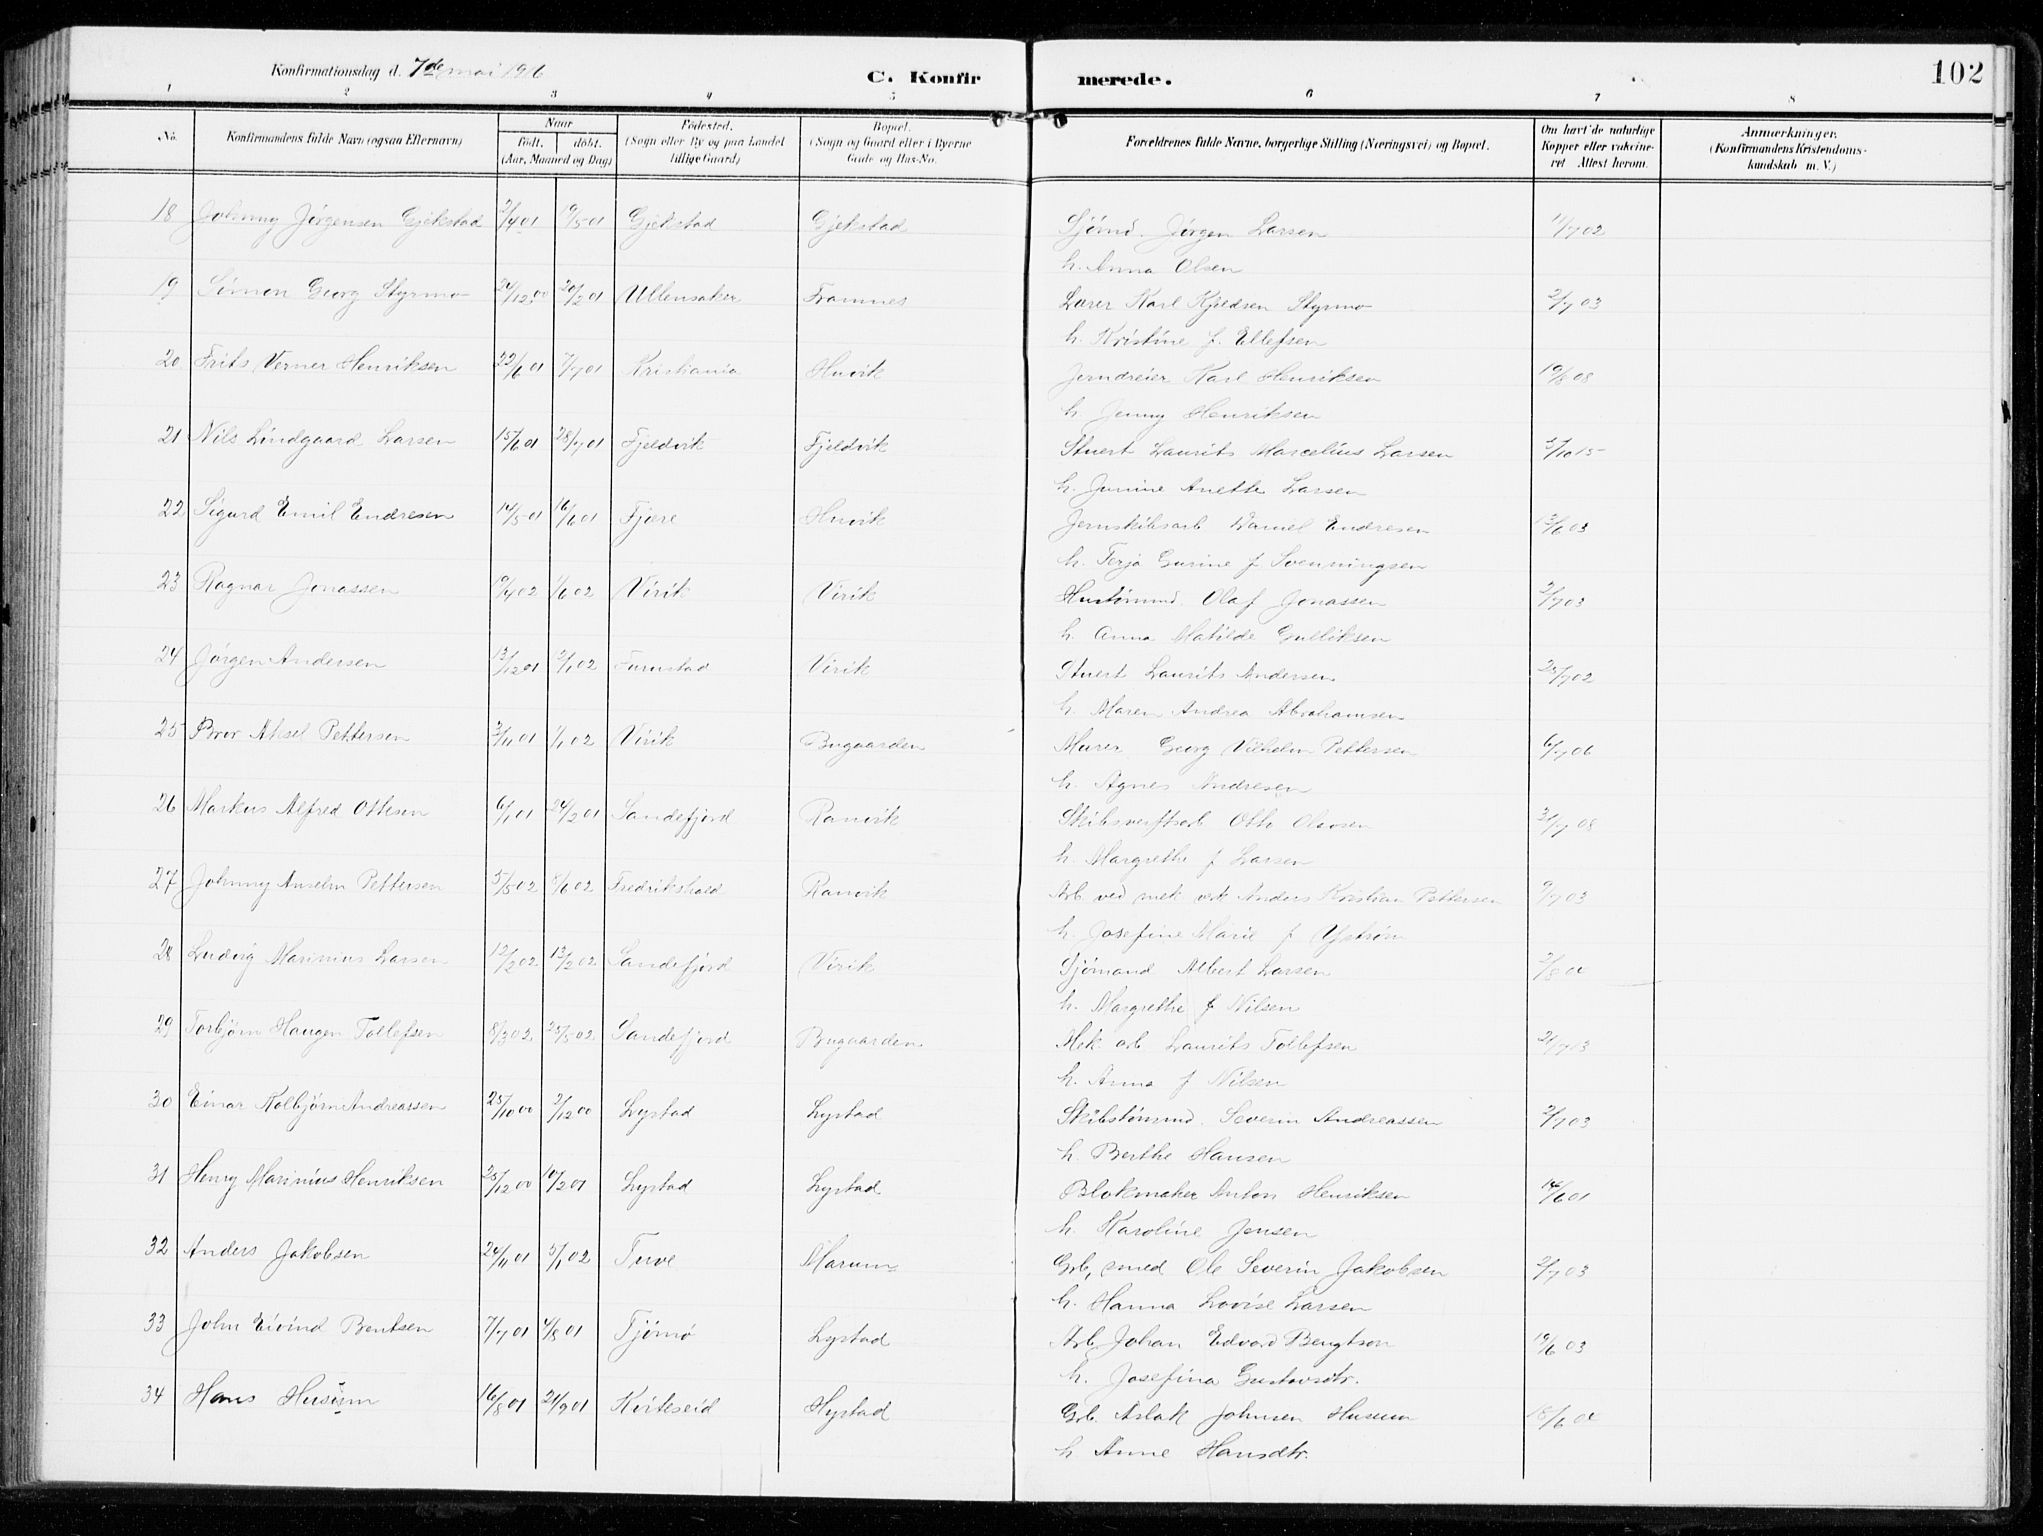 Konfirmationsdag d. 7de mai 1916
C. Konfir merede. 102
1 2 3 4 5 6 7 8
No. Konfirmandens fulde Navn (ogsaa Efternavn) Naar født. døbt. (Aar, Maaned og Dag) Fødested. (Sogn eller By og paa Landet tillige Gaard) Bopæl. (Sogn og Gaard eller i Byerne Gade og Hus-No. Forældrenes fulde Navne, borgerlige Stilling (Næringsvei) og Bopæl. Om havt de naturlige Kopper eller vakcineret Attest herom. Anmærkninger. (Konfirmandens Kristendomskundskab m. V.)
18 Johnny Jørgensen Gjekstad 2/4 01 19/5 01 Gjekstad Gjekstad Sjømd. Jørgen Larsen 11/7 02
h. Anna Olsen
19 Simon Georg Styrmo 24/12 00 20/2 01 Ullensaker Framnes Lærer Karl Kjeldsen Styrmo 2/7 03
h. Kristine f. Ellefsen
20 Frits Verner Henriksen 22/6 01 7/7 01 Kristiania Huvik Jerndreier Karl Henriksen 19/8 08
h. Jenny Henriksen
21 Nils Lindgaard Larsen 15/6 01 28/7 01 Fjeldvik Fjeldvik Stuert Laurits Marcelius Larsen 5/10 15
h. Junine Anette Larsen
22 Sigurd Emil Endresen 14/5 01 16/6 01 Fjære Huvik Jernskibsarb Daniel Endresen 13/6 03
h. Terja Gurine f Svenningsen
23 Ragnar Jonassen 19/4 02 1/6 02 Virik Virik Hustømmd. Olaf Jonassen 2/7 03
h. Anna Matilde Gulliksen
24 Jørgen Andersen 13/12 01 2/1 02 Furustad Virik Stuert Laurits Andersen 25/7 02
h. Maren Andrea Abrahamsen
25 Bror Aksel Pettersen 3/11 01 1/1 02 Virik Bugaarden Murer Georg Vilhelm Pettersen 6/7 06
h. Agnes Andresen
26 Markus Alfred Ottesen 6/1 01 24/2 01 Sandefjord Ranvik Skibsverftsarb Otto Olavsen 31/7 08
h. Margrethe f Larsen
27 Johnny Anselm Pettersen 5/5 02 8/6 02 Fredrikshald Ranvik Arb ved mek verk Anders Kristian Pettersen 9/7 03
h. Josefine Marie f Ystrøm
28 Ludvig Marinius Larsen 12/2 02 13/2 02 Sandefjord Virik Sjømand Albert Larsen 2/8 04
h. Margrethe f Nilsen
29 Torbjørn Haugen Tollefsen 8/3 02 25/5 02 Sandefjord Bugaarden Mek. arb Laurits Tollefsen 21/7 13
h. Anna f Nilsen
30 Einar Kolbjørn Andreassen 25/10 00 2/12 00 Lystad Lystad Skibstømmd. Severin Andreassen 2/7 03
h. Berthe Hansen
31 Henry Marinius Henriksen 25/12 00 10/2 01 Lystad Lystad Blokmaker Anton Henriksen 14/6 01
h. Karoline Jensen
32 Anders Jakobsen 24/11 01 5/1 02 Tuve Marum Grb, smed Ole Severin Jakobsen 2/7 03
h. Hanna Lovise Larsen
33 John Eivind Bentsen 7/7 01 4/8 01 Tjømø Lystad Arb Johan Edvard Bengtson 19/6 03
h. Josefina Gustavsdtr.
34 Hans Husum 16/8 01 21/9 01 Kviteseid Hystad Grb. Aslak Johnsen Husum 18/6 04
h Anne Hansdtr.